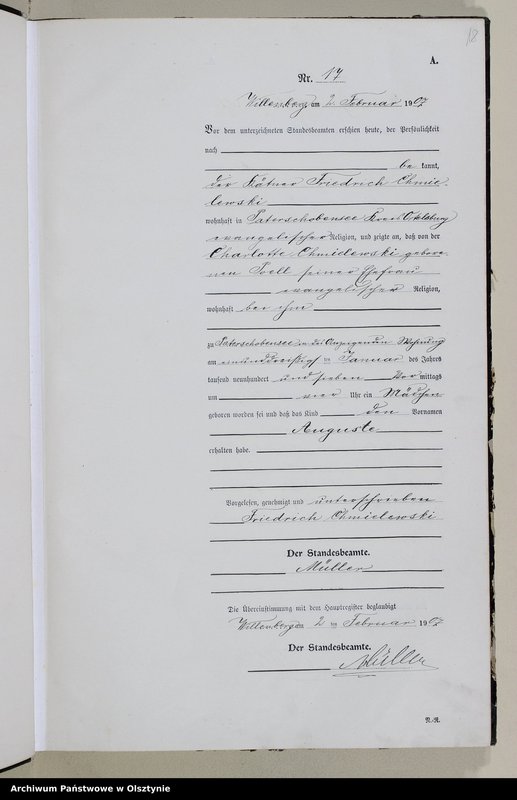 18
A.
Nr. 17
Willenberg am 2. Februar 1907
Vor dem unterzeichneten Standesbeamten erschien heute, der Persönlichkeit
nach
be kannt,
der Kätner Friedrich Chmie-
lewski
wohnhaft in Paterschobensee Kreis Ortelsburg
evangelischer Religion, und zeigte an, daß von der
Charlotte Chmielewski gebore-
nen seiner Ehefrau
evangelischer Religion,
wohnhaft bei ihm
zu Paterschobensee in der Wohnung
am einunddreißigsten Januar des Jahres
tausend neunhundert und sieben Vor mittags
um vier Uhr ein Mädchen
geboren worden sei und daß das Kind den Vornamen
Auguste
erhalten habe.
Vorgelesen, genehmigt und unterschrieben
Friedrich Chmielewski
Der Standesbeamte.
Müller
Die Übereinstimmung mit dem Hauptregister beglaubigt
Willenberg am 2. Februar 1907
Der Standesbeamte.
Müller
N.-R.
Archiwum Państwowe w Olsztynie